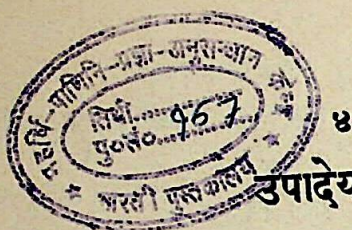 महर्षि-पाणिनि-प्रज्ञा-अनुसन्धान केन्द्र
तिथी..............
पु०सं० 967
भारती पुस्तकालय
४
उपादेय